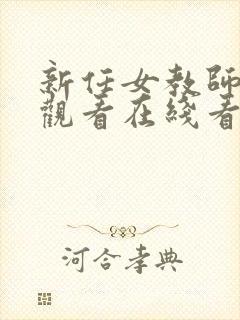 新任女教師
觀看在綫看
河合孝典